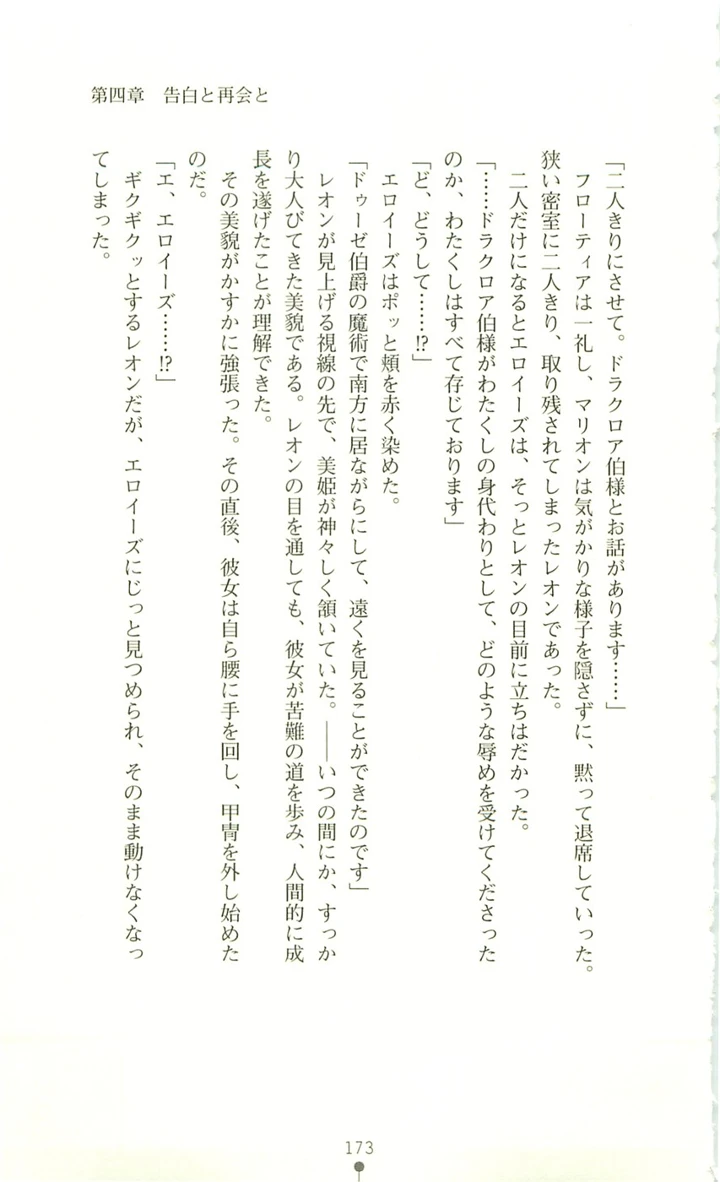 第四章　告白と再会と
「二人きりにさせて。ドラクロア伯様とお話があります……」
　フローティアは一礼し、マリオンは気がかりな様子を隠さずに、黙って退席していった。
狭い密室に二人きり、取り残されてしまったレオンであった。
　二人だけになるとエロイーズは、そっとレオンの目前に立ちはだかった。
「……ドラクロア伯様がわたくしの身代わりとして、どのような辱めを受けてくださった
のか、わたくしはすべて存じております」
「ど、どうして……!?」
　エロイーズはポッと頬を赤く染めた。
「ドゥーゼ伯爵の魔術で南方に居ながらにして、遠くを見ることができたのです」
　レオンが見上げる視線の先で、美姫が神々しく頷いていた。――いつの間にか、すっか
り大人びてきた美貌である。レオンの目を通しても、彼女が苦難の道を歩み、人間的に成
長を遂げたことが理解できた。
　その美貌がかすかに強張った。その直後、彼女は自ら腰に手を回し、甲冑を外し始めた
のだ。
「エ、エロイーズ……!?」
　ギクギクッとするレオンだが、エロイーズにじっと見つめられ、そのまま動けなくなっ
てしまった。
173